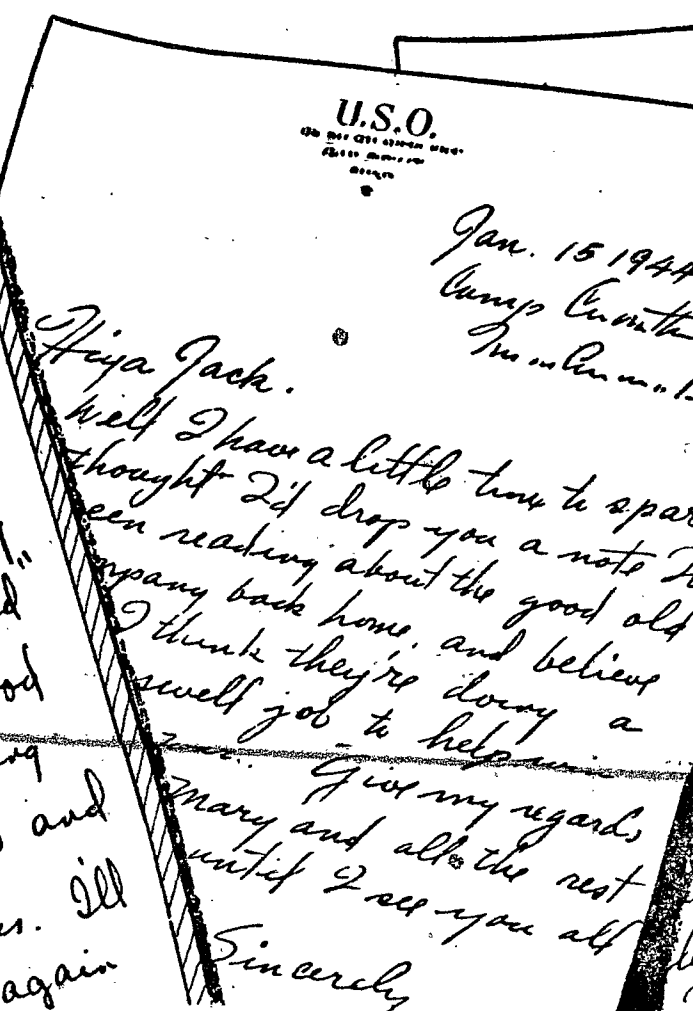 U.S.O.
Jan. 15 1944
Camp
Hiya Jack.
Well I have a little time to spar
thought I'd drop you a note
een reading about the good old
mpany back home, and believe
I think they're doing a
swell job to help win
Give my regards
Mary and all the rest
until I see you all
Sincerely
d
od
ing
and
us. I'll
again